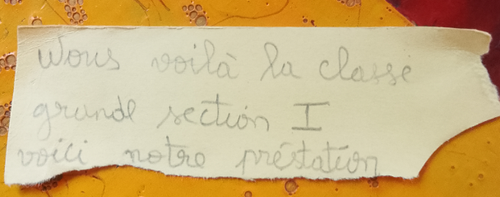 Nous voilà la classe
grande section I
voici notre préstation